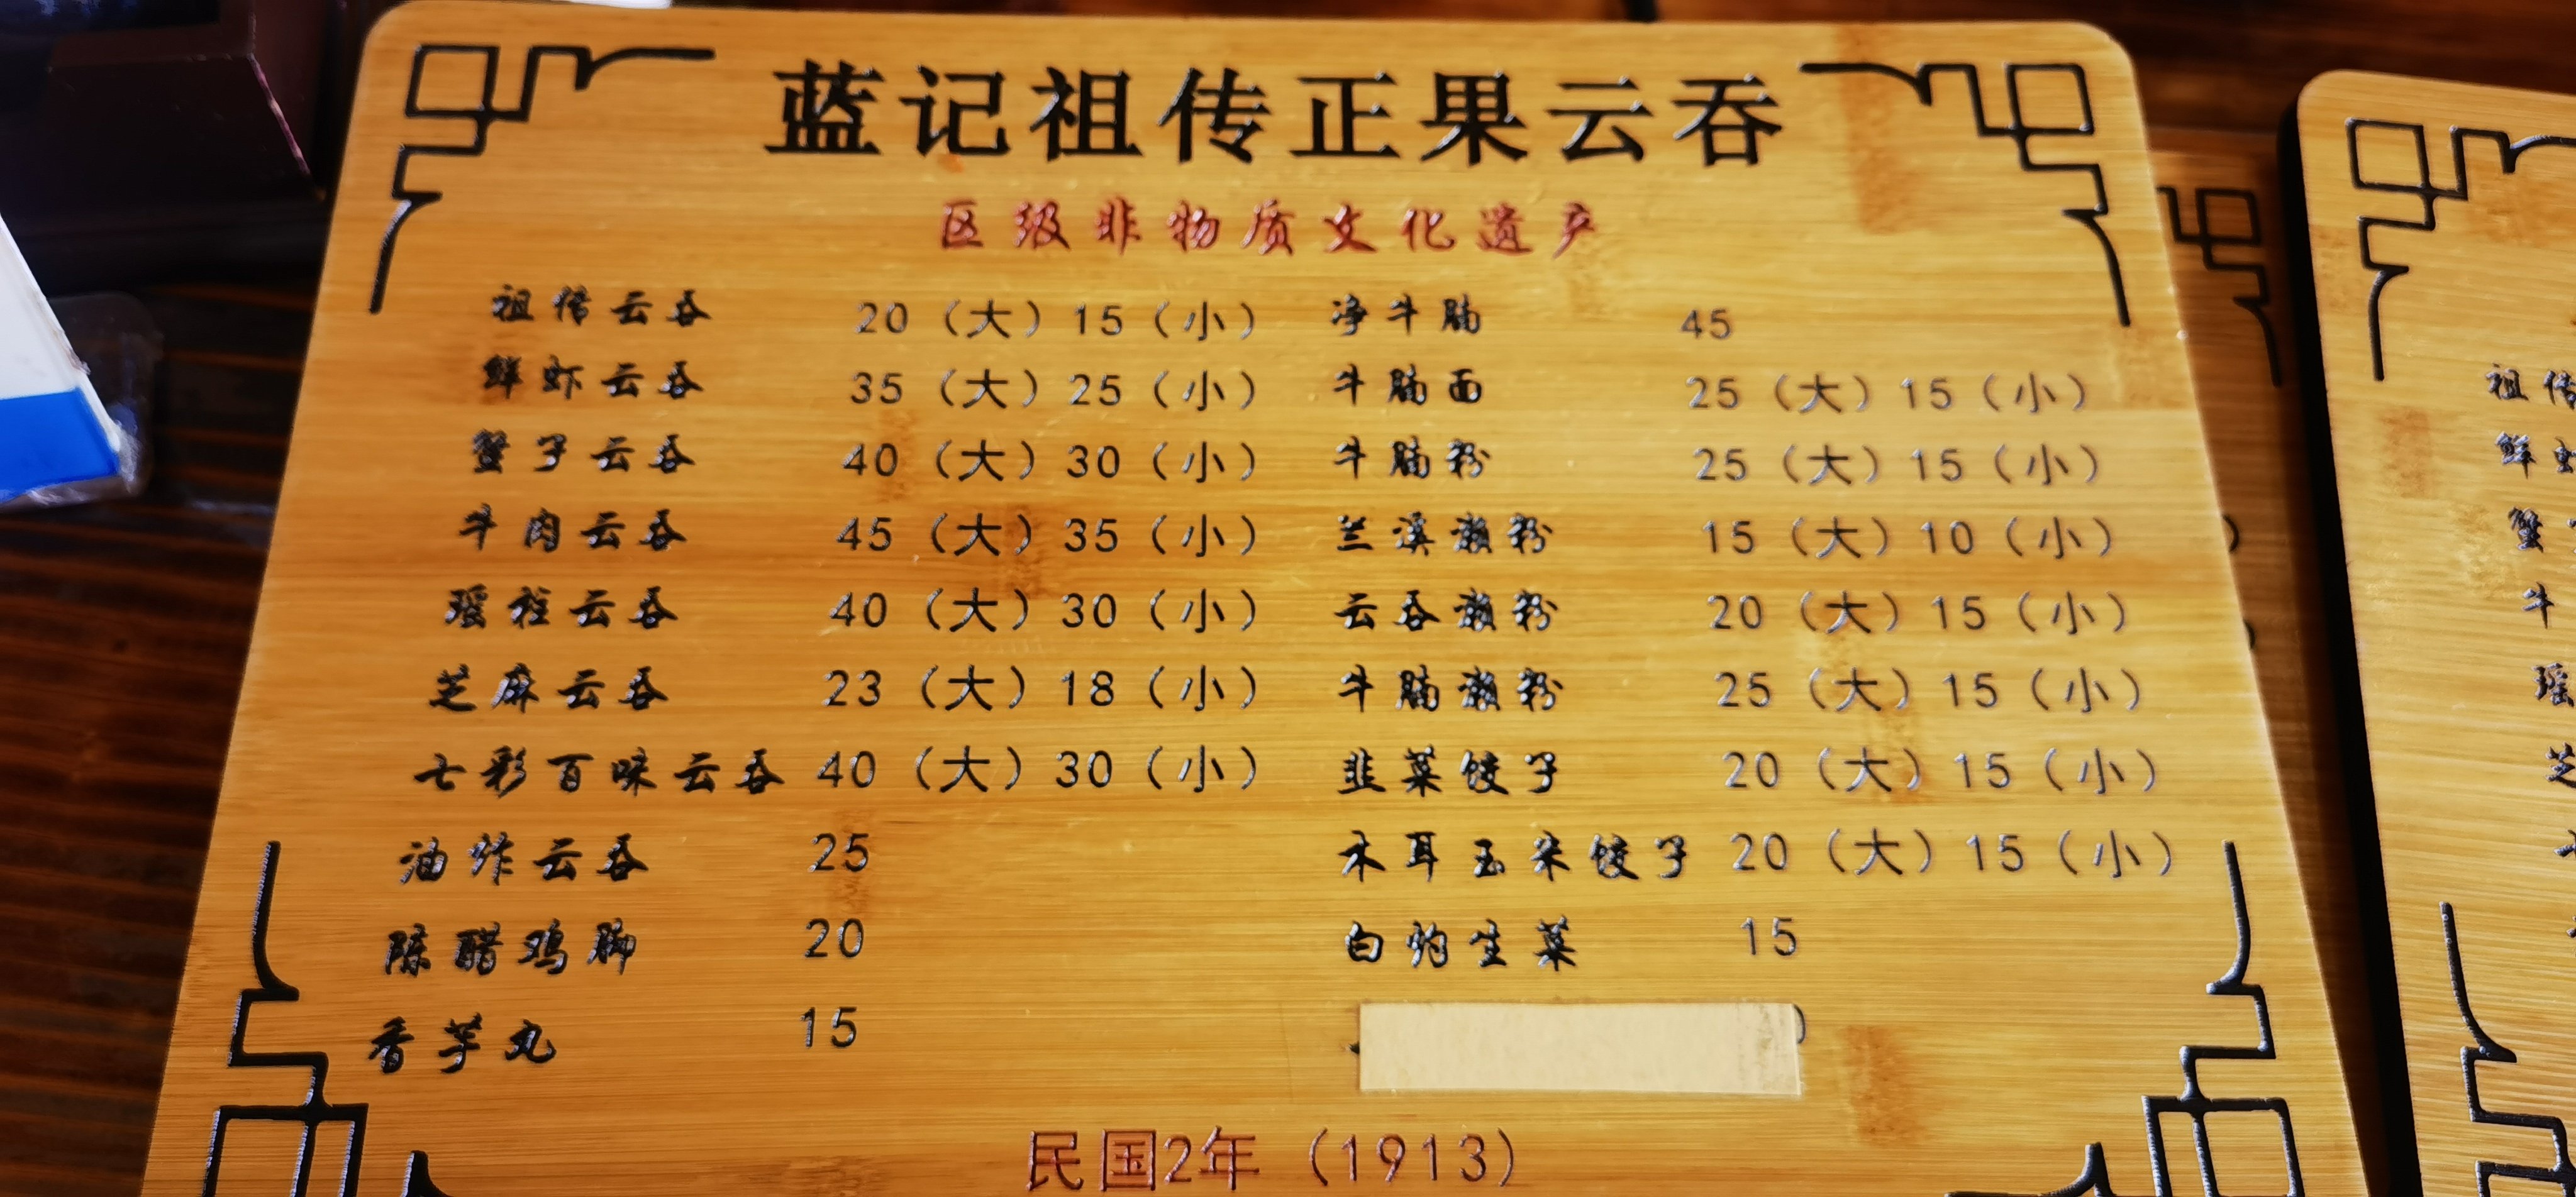 蓝记祖传正果云吞
区级非物质文化遗产
祖传云吞 20（大）15（小） 净牛腩 45
鲜虾云吞 35（大）25（小） 牛腩面 25（大）15（小）
蟹子云吞 40（大）30（小） 牛腩粉 25（大）15（小）
牛肉云吞 45（大）35（小） 兰溪濑粉 15（大）10（小）
瑶柱云吞 40（大）30（小） 云吞濑粉 20（大）15（小）
芝麻云吞 23（大）18（小） 牛腩濑粉 25（大）15（小）
七彩百味云吞 40（大）30（小） 韭菜饺子 20（大）15（小）
油炸云吞 25 木耳玉米饺子 20（大）15（小）
陈醋鸡脚 20 白灼生菜 15
香芋丸 15
民国2年（1913）
祖传
鲜虾
蟹
牛
瑶
芝